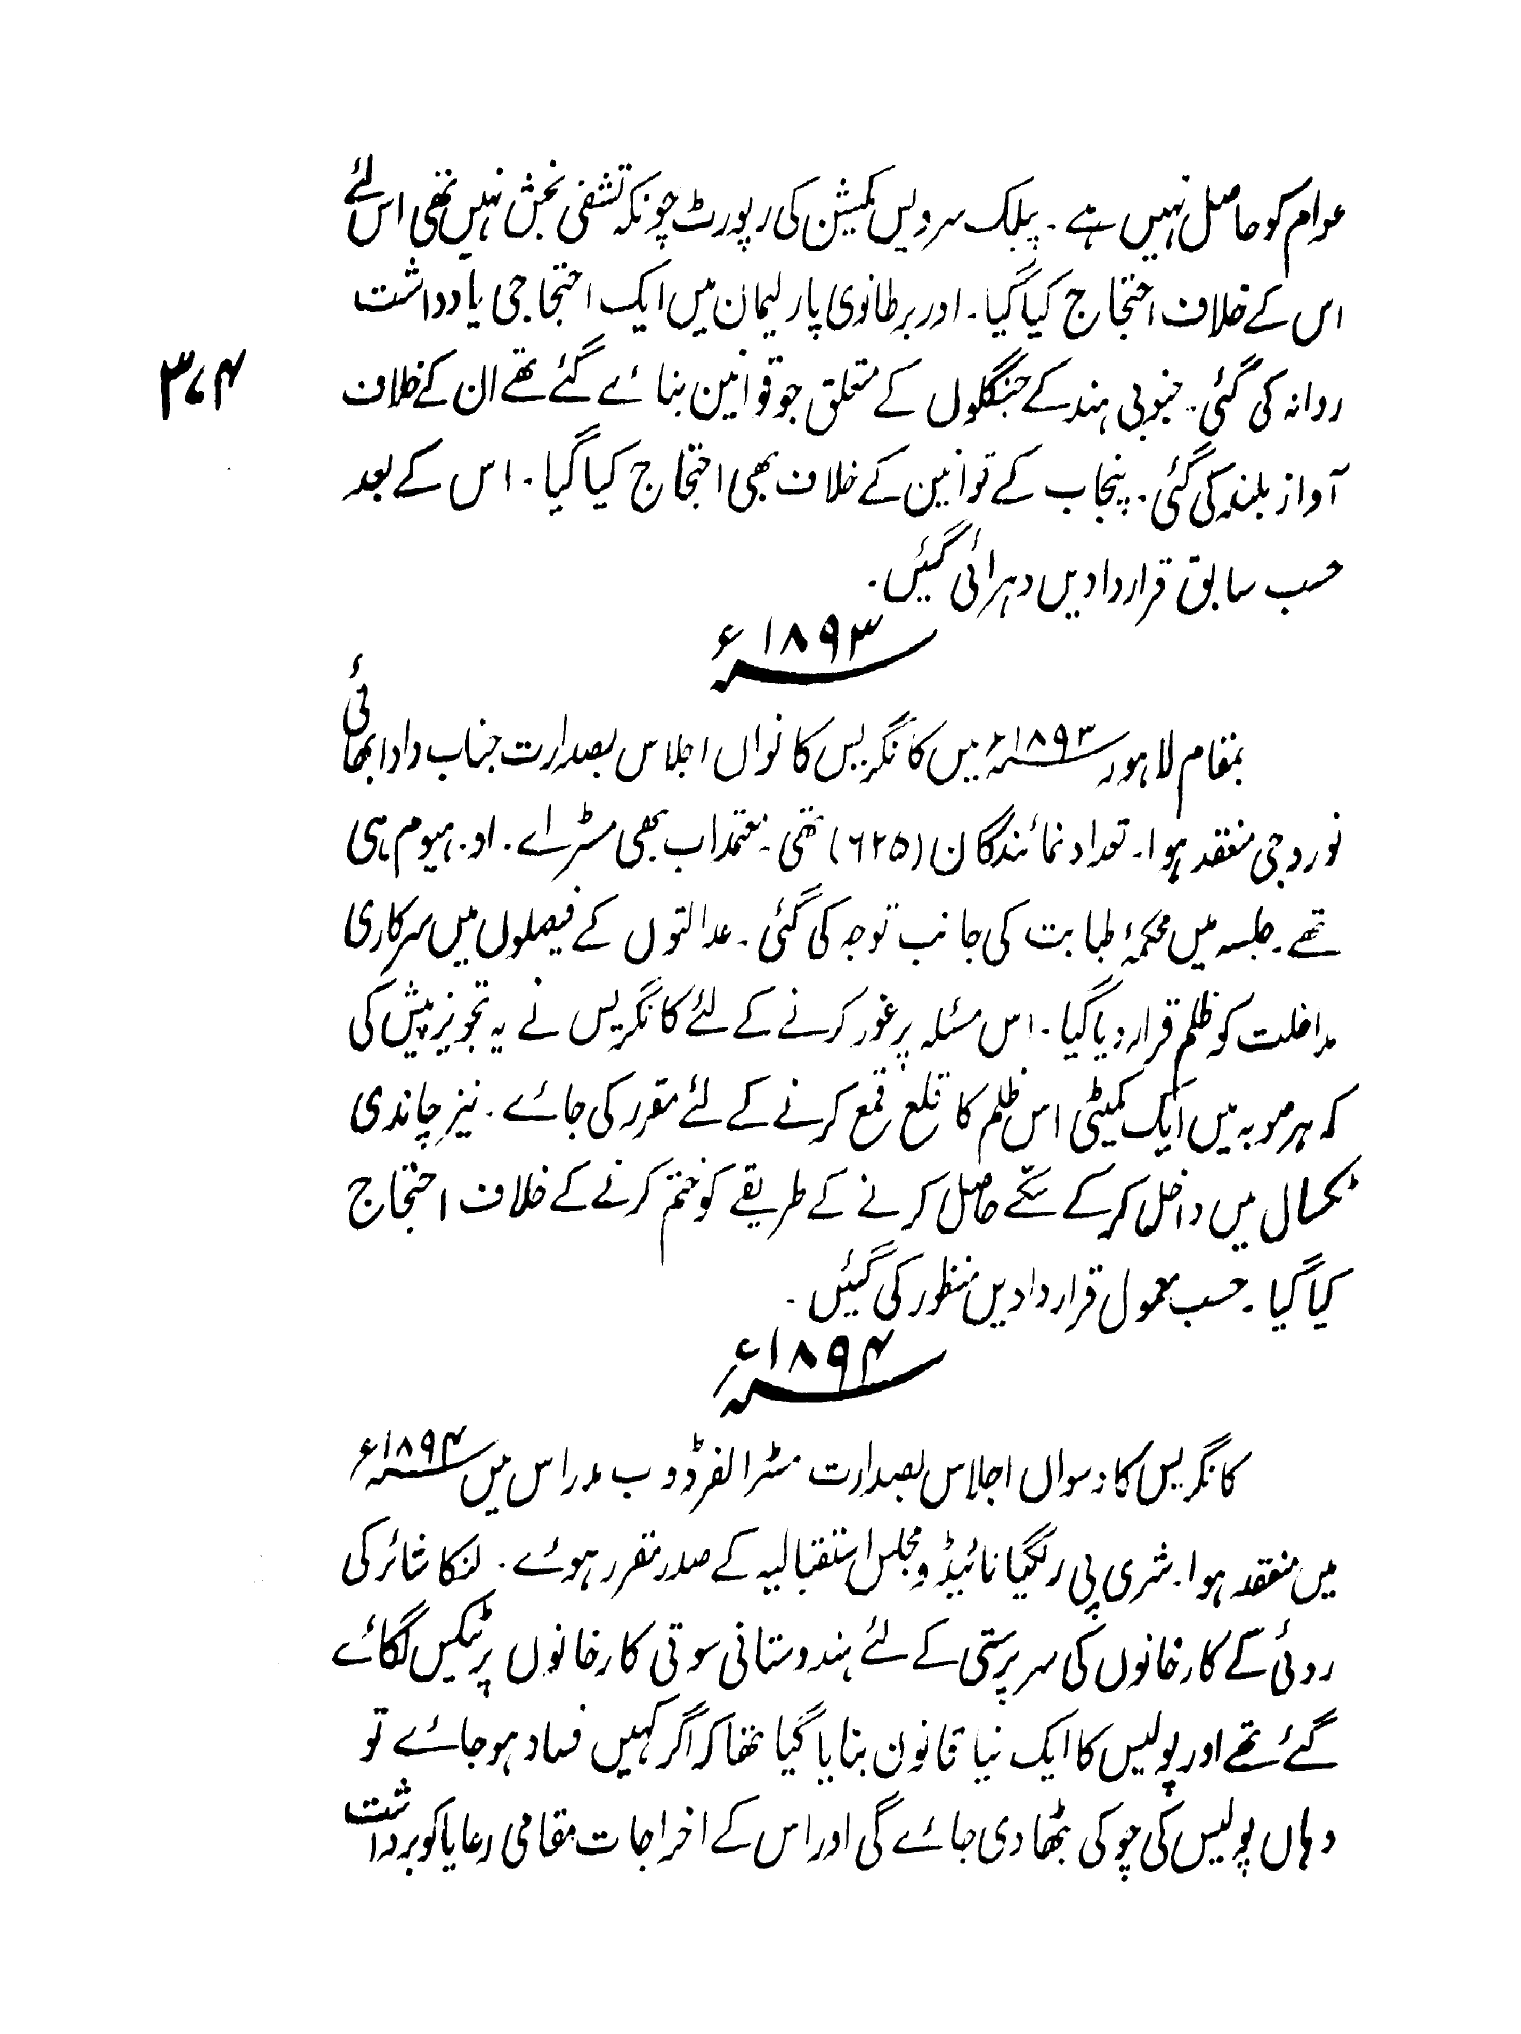 عوام کو حاصل نہیں ہے۔ پبلک سرویس کمیشن کی رپورٹ چونکہ تشفی بخش نہیں تھی اس لئے
اس کے خلاف احتجاج کیا گیا۔ اور برطانوی پارلیمان میں ایک احتجاجی یادداشت
روانہ کی گئی۔ جنوبی ہند کے جنگلوں کے متعلق جو قوانین بنائے گئے تھے ان کے خلاف
۳۷۴
آواز بلند کی گئی۔ پنجاب کے قوانین کے خلاف بھی احتجاج کیا گیا۔ اس کے بعد
حسب سابق قراردادیں دہرائی گئیں۔
۱۸۹۳ء
بمقام لاہور ۱۸۹۳ء میں کانگریس کا نواں اجلاس بصدارت جناب دادا بھائی
نوروجی منعقد ہوا۔ تعداد نمائندگان (۶۲۵) تھی۔ معتمد اب بھی مسٹر اے۔ او۔ ہیوم ہی
تھے۔ جلسہ میں محکمۂ طبابت کی جانب توجہ کی گئی۔ عدالتوں کے فیصلوں میں سرکاری
مداخلت کو ظلم قرار دیا گیا۔ اس مسئلہ پر غور کرنے کے لئے کانگریس نے یہ تجویز پیش کی
کہ ہر صوبہ میں ایک کمیٹی اس ظلم کا قلع قمع کرنے کے لئے مقرر کی جائے۔ نیز چاندی
ٹکسال میں داخل کر کے سکّے حاصل کرنے کے طریقے کو ختم کرنے کے خلاف احتجاج
کیا گیا۔ حسب معمول قراردادیں منظور کی گئیں۔
۱۸۹۴ء
کانگریس کا دسواں اجلاس بصدارت مسٹر الفرڈ وب مدراس میں ۱۸۹۴ء
میں منعقد ہوا۔ شری پی رنگیا نائیڈو مجلس استقبالیہ کے صدر مقرر ہوئے۔ لنکاشائر کی
روئی کے کارخانوں کی سرپرستی کے لئے ہندوستانی سوتی کارخانوں پر ٹیکس لگائے
گئے تھے اور پولیس کا ایک نیا قانون بنایا گیا تھا کہ اگر کہیں فساد ہو جائے تو
وہاں پولیس کی چوکی بٹھا دی جائے گی اور اس کے اخراجات مقامی رعایا کو برداشت